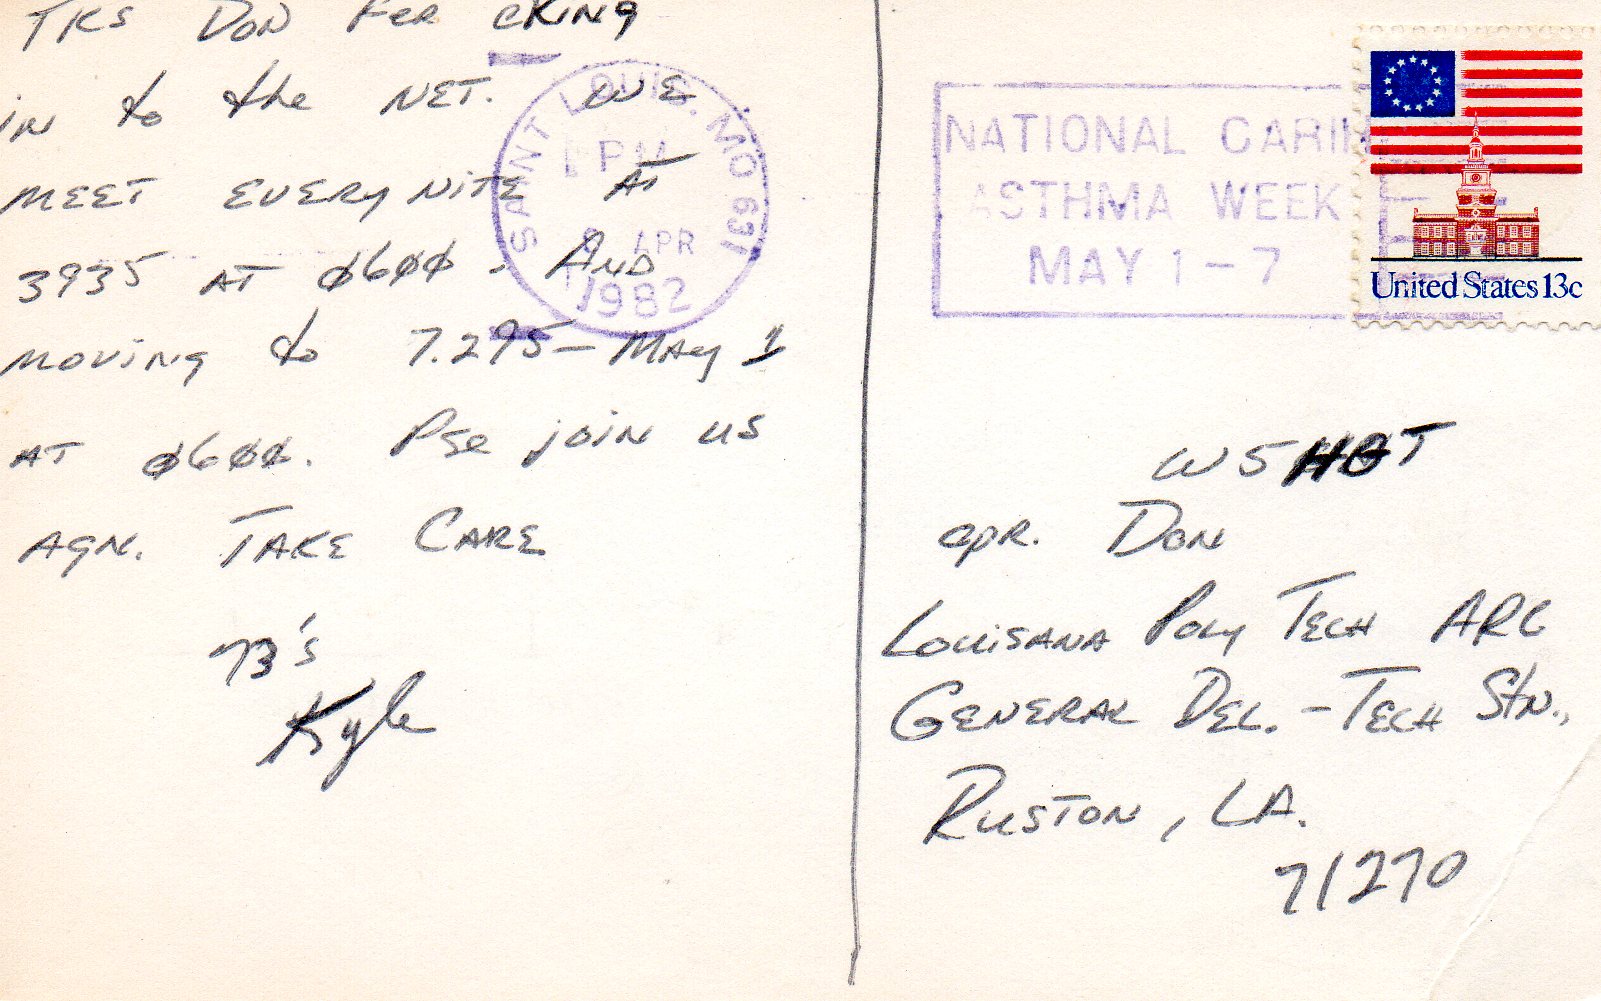 TKS DON FER CKING
IN to the NET. WE
MEET EVERY NITE AT
3935 AT Ø6ØØ. AND
MOVING to 7.295 – MAY 1
AT Ø6ØØ. PSE JOIN US
AGN. TAKE CARE
73's
Kyle
SAINT LOUIS, MO 631
PM
APR
1982
NATIONAL CARIN
ASTHMA WEEK
MAY 1 – 7
United States 13c
W5HGT
OPR. DON
LOUISIANA POLY TECH ARC
GENERAL DEL. – TECH STN.,
RUSTON, LA.
71270